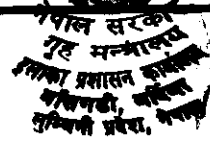 नेपाल सरकार
गृह मन्त्रालय
इलाका प्रशासन कार्यालय
लुम्बिनी प्रदेश, नेपाल